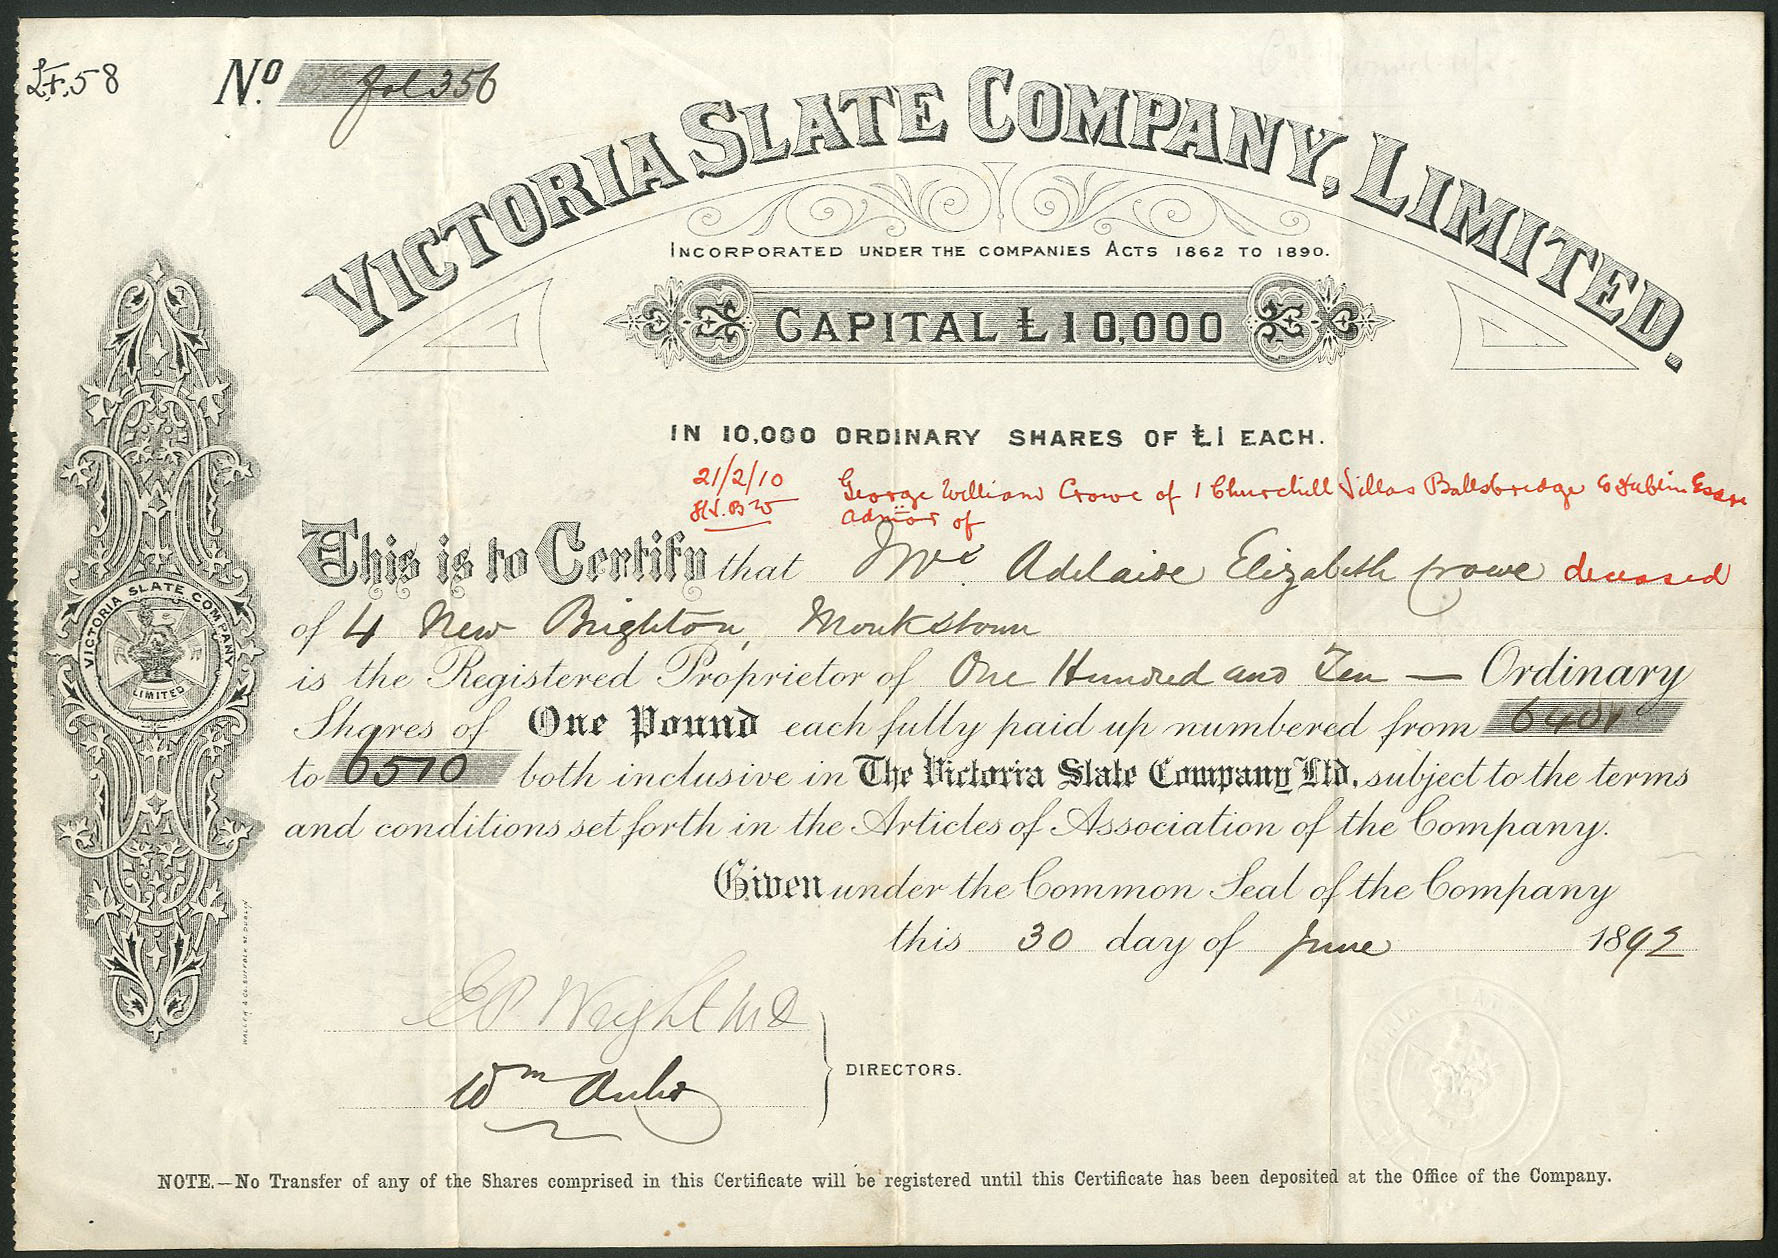 L.F.58
No. Fol 356
VICTORIA SLATE COMPANY, LIMITED.
INCORPORATED UNDER THE COMPANIES ACTS 1862 TO 1890.
CAPITAL £10,000
IN 10,000 ORDINARY SHARES OF £1 EACH.
21/2/10 George William Crowe of 1 Churchill Villas Ballsbridge Co Dublin Esqre
Admor of
This is to Certify that Mrs. Adelaide Elizabeth Crowe deceased
of 4 New Brighton, Monkstown
is the Registered Proprietor of One Hundred and Ten — Ordinary
Shares of One Pound each fully paid up numbered from 6401
to 6510 both inclusive in The Victoria Slate Company Ltd. subject to the terms
and conditions set forth in the Articles of Association of the Company.
Given under the Common Seal of the Company
this 30 day of June 1892
E P Wright MD
Wm
DIRECTORS.
VICTORIA SLATE COMPANY
LIMITED
WALLER & CO. SUFFOLK ST. DUBLIN
NOTE.—No Transfer of any of the Shares comprised in this Certificate will be registered until this Certificate has been deposited at the Office of the Company.